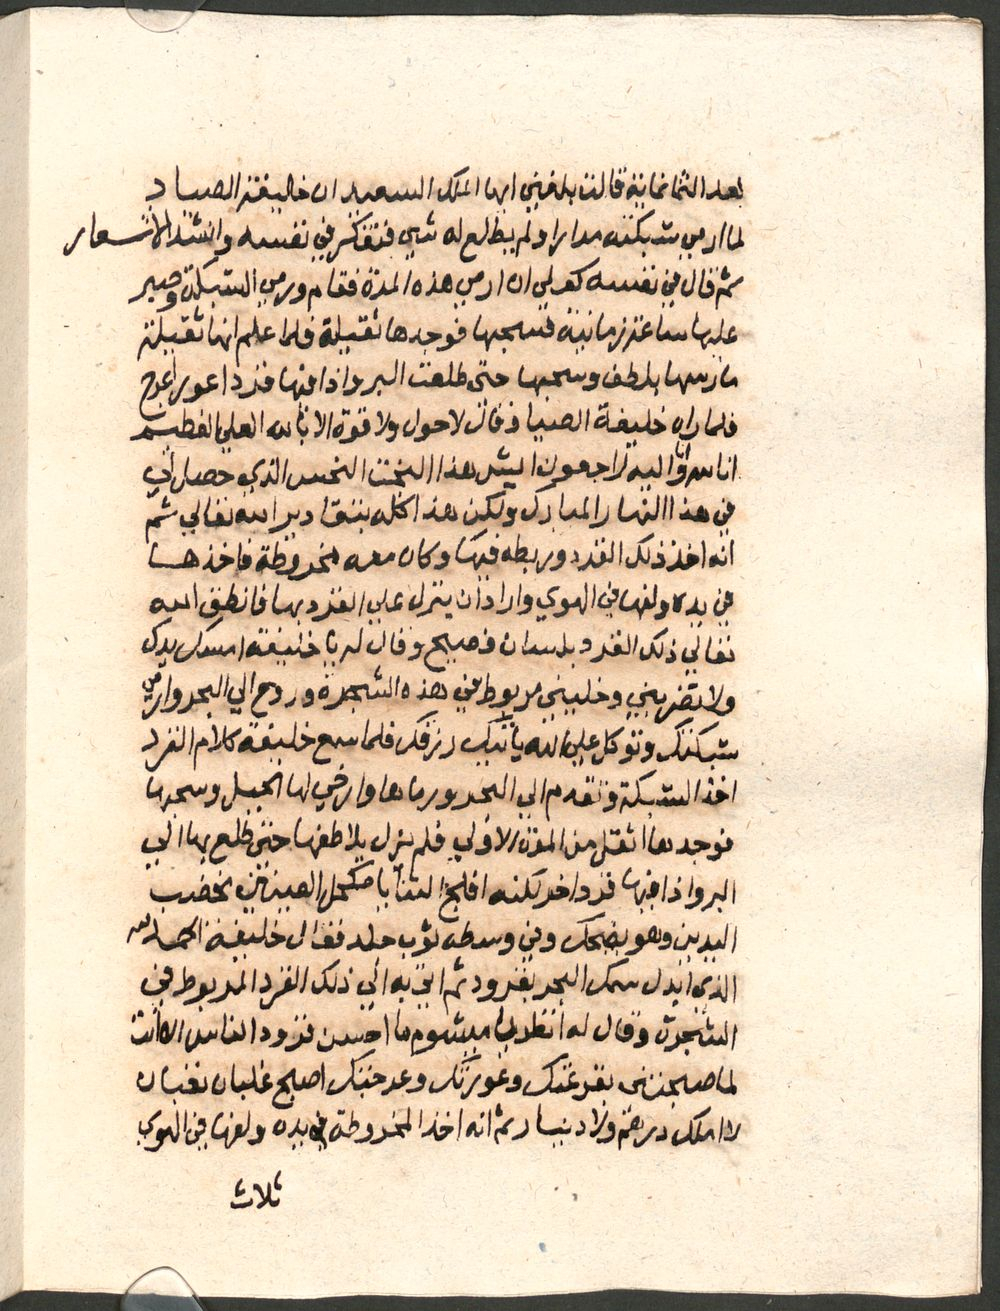 بعد الثمانماية قالت بلغني ايها الملك السعيد ان خليفة الصياد
لما ارمي شبكته مدارا ولم يطلع له شي فتفكر في نفسه وانشد الاشعار
ثم قال في نفسه كعد لي ان ارمي هذه المرة فقام ورمي الشبكة وصبر
عليها ساعة زمانية فسحبها فوجدها ثقيلة فلما علم انها ثقيلة
مارسها بلطف وسحبها حتى طلعت البر واذا فيها قرد اعور اعرج
فلما راه خليفة الصياد قال لا حول ولا قوة الا بالله العلي العظيم
انا لله وانا اليه راجعون ايش هذا البخت النحس الذي حصل لي
في هذا النهار المبارك ولكن هذا كله بتقادير الله تعالي ثم
انه اخذ ذلك القرد وربطه فيها وكان معه مخروطة فاخذها
في يده ولفها في الهوي واراد ان ينزل علي القرد بها فانطق الله
تعالي ذلك القرد بلسان فصيح وقال له يا خليفة امسك يدك
ولا تضربني وخليني مربوط في هذه الشجرة وروح الي البحر وارمي
شبكتك وتوكل علي الله يأتيك رزقك فلما سمع خليفة كلام القرد
اخذ الشبكة وتقدم الي البحر ورماها وارخي لها الحبل وسحبها
فوجدها اثقل من المرة الاولي فلم يزل يلاطفها حتى طلع بها الي
البر واذا فيها قردا اخر لكنه افلج الثنايا مكحل العينين مخضب
اليدين وهو يضحك وفي وسطه ثوب خلد فقال خليفة الحمد لله
الذي ابدل سمك البحر بقرود ثم اتي به الي ذلك القرد المربوط في
الشجرة وقال له انظر يا ميشوم ما احسن قرود الناس الا انت
لما صبحتني بقرعتك وعورتك وعرجتك اصبح غلبان تعبان
لا املك درهم ولا دينار ثم انه اخذ المخروطة في يده ولفها في الهوي
ثلاث